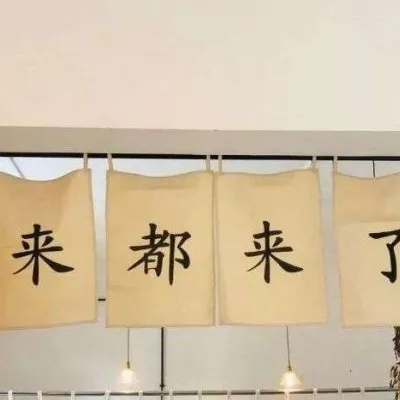 来都来了